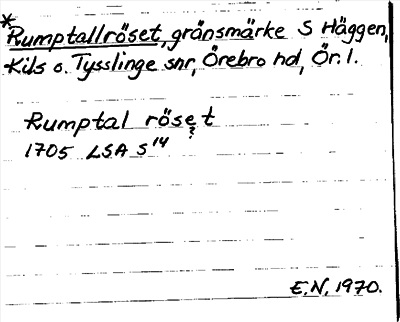 *Rumptallröset, gränsmärke S Häggen,
Kils o. Tysslinge snr, Örebro hd, Ör. l.
Rumptal röset
?
1705 LSA S 14
E.N. 1970.